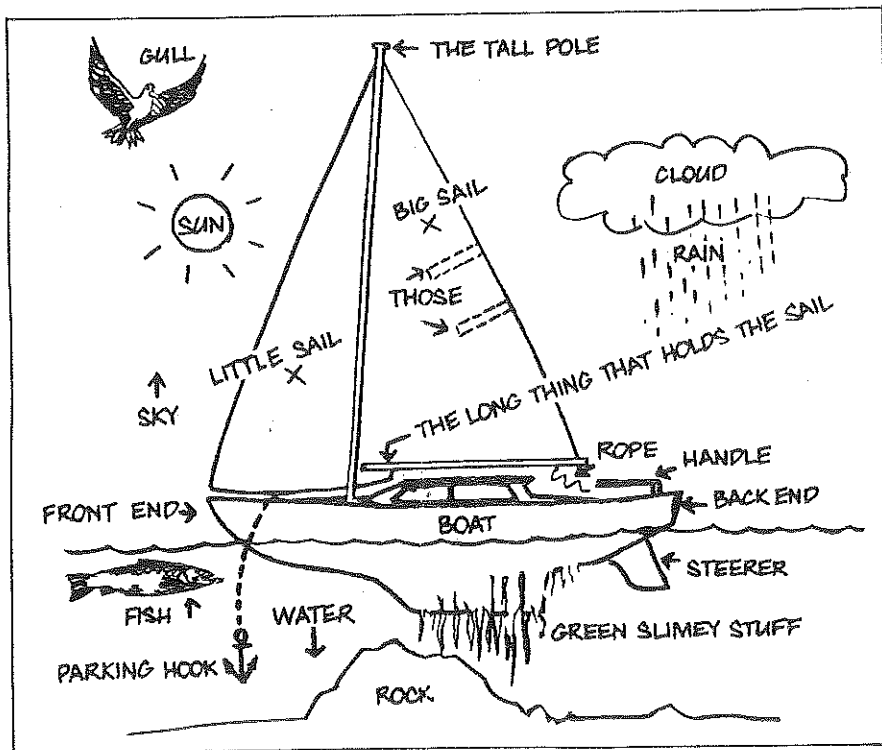 GULL
THE TALL POLE
SUN
BIG SAIL
CLOUD
RAIN
THOSE
LITTLE SAIL
THE LONG THING THAT HOLDS THE SAIL
SKY
ROPE
HANDLE
FRONT END
BACK END
BOAT
STEERER
FISH
WATER
GREEN SLIMEY STUFF
PARKING HOOK
ROCK